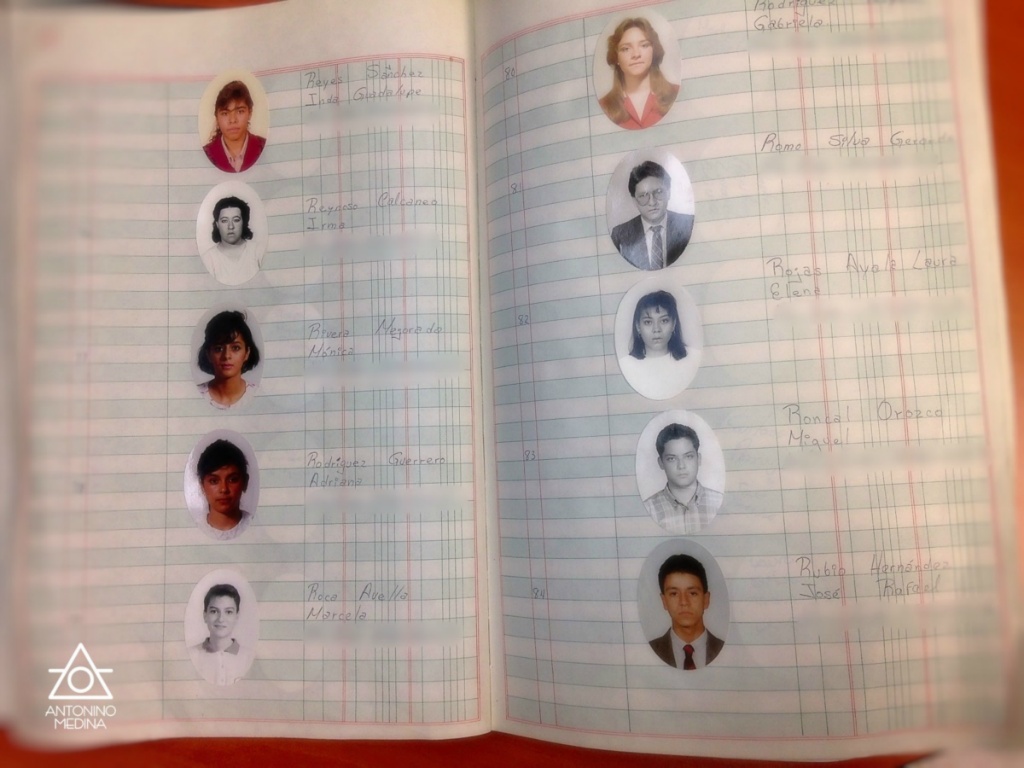 Reyes Sánchez
Guadalupe
Reynoso Calcaneo
Irma
Rivera Mejorada
Mónica
Rodríguez Guerrero
Adriana
Roca
Marcela
Rodríguez
Gabriela
80
81
Silva
82
Rojas Laura
Elena
83
Roncal Orozco
Miguel
84
Rubio Hernández
José Rafael
ANTONINO
MEDINA